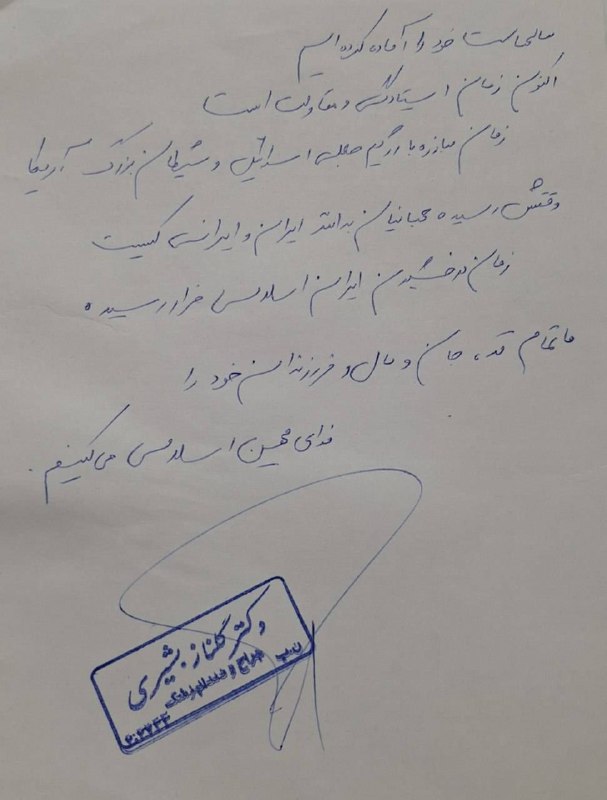 سالهاست خود را آماده کرده ایم
اکنون زمان ایستادگی و مقاومت است
زمان مبارزه با رژیم جعلی اسرائیل و شیطان بزرگ آمریکا
وقتش رسیده جهانیان بدانند ایران و ایرانی کیست
زمان درخشیدن ایران اسلامی فرا رسیده
ما تمام قد، جان و مال و فرزندان خود را
فدای میهن اسلامی می‌کنیم.
دکتر گلناز بشیری
جراح و دندانپزشک
ن.پ ۲۰۲۲۴۳